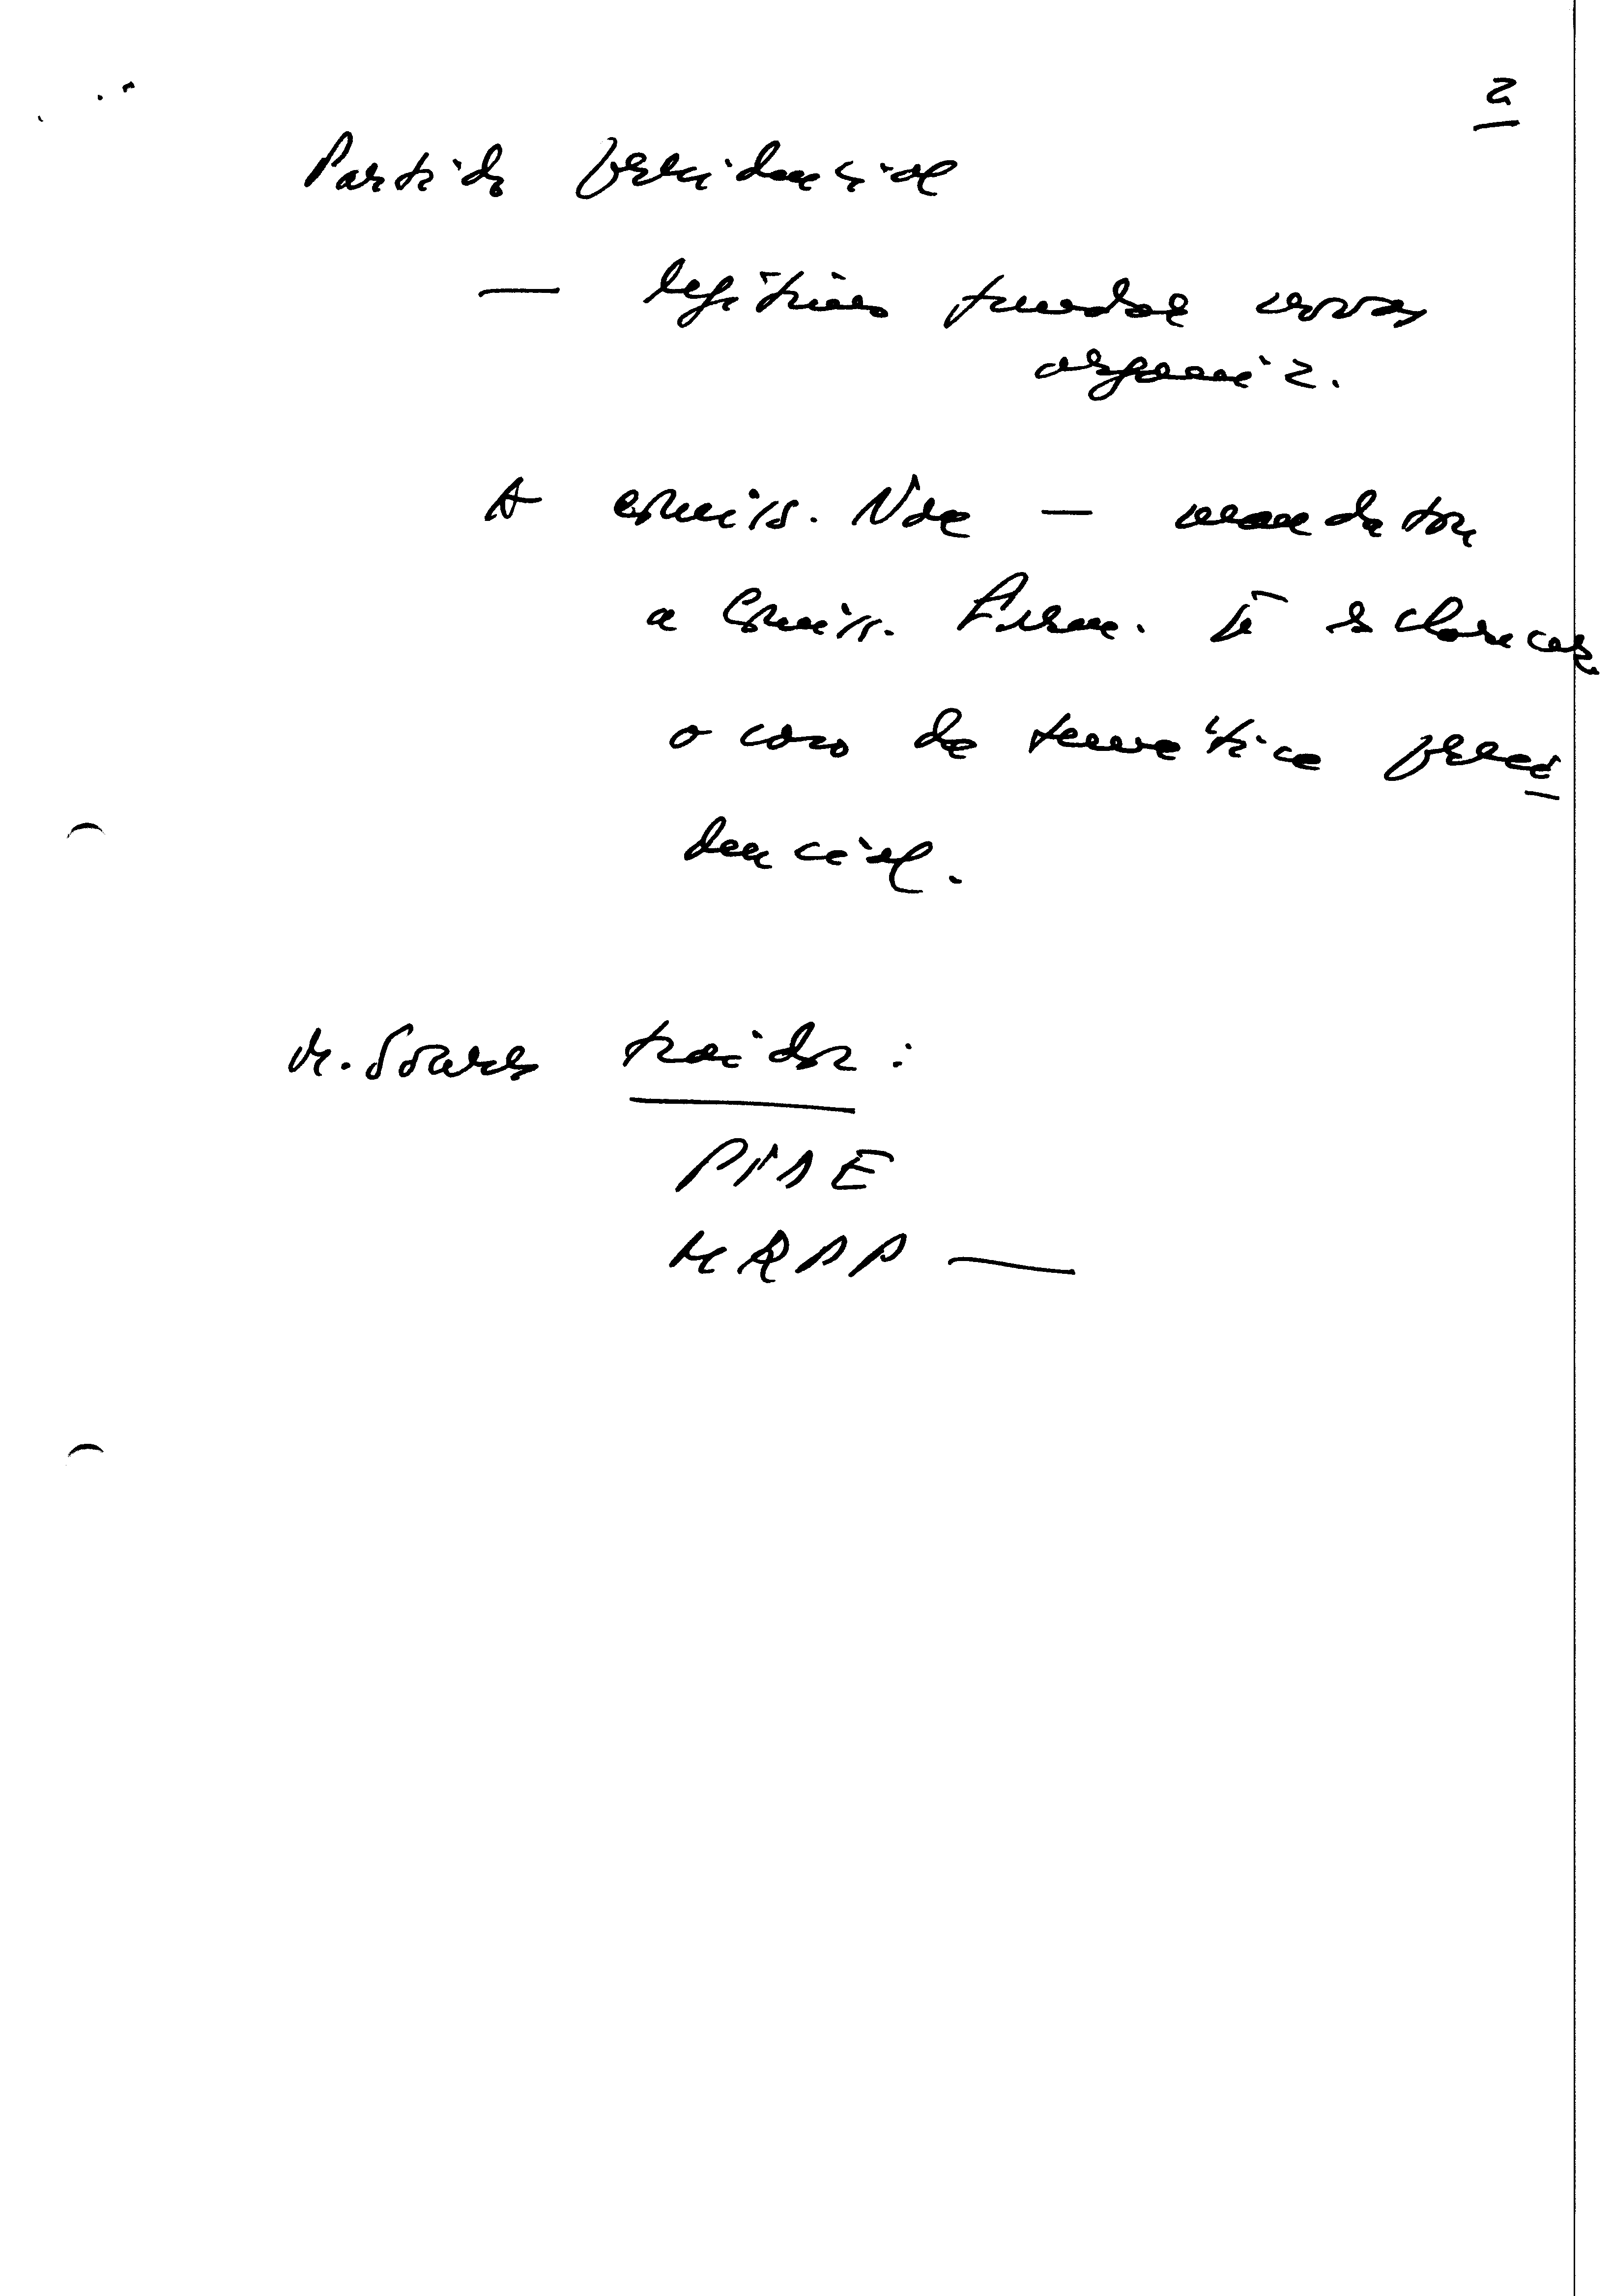 2
Partido presidencial
— legítimo fundar novas
organiz.
A Comiss. Nac — mandatou
a Comiss. Perm. p/ esclarecer
o caso da temática presi
dencial.
M. Soares traidor:
PIDE
MRPP —